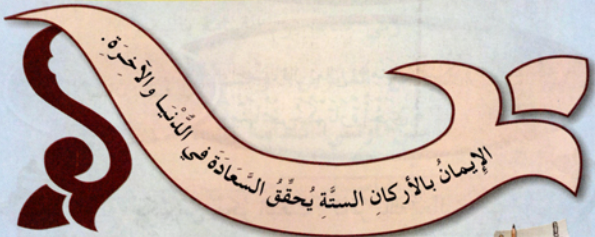 الإِيمانُ بالأركانِ الستَّةِ يُحقِّقُ السَّعَادَةَ في الدُّنْيَا والآخِرَةِ.